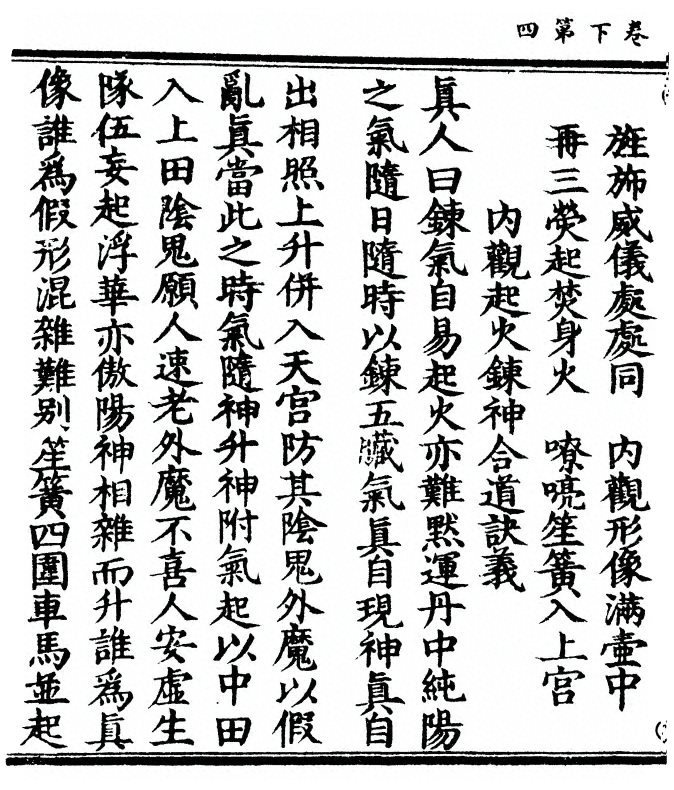 卷下第四
旌斾威儀處處同　內觀形像滿壷中
再三熒起焚身火　嘹喨笙簧入上宮
內觀起火鍊神合道訣義
眞人曰鍊氣自易起火亦難默運丹中純陽
之氣隨日隨時以鍊五臟氣眞自現神眞自
出相照上升併入天宮防其陰鬼外魔以假
亂眞當此之時氣隨神升神附氣起以中田
入上田陰鬼願人速老外魔不喜人安虛生
隊伍妄起浮華亦倣陽神相雜而升誰爲眞
像誰爲假形混雜難別笙簧四圍車馬並起